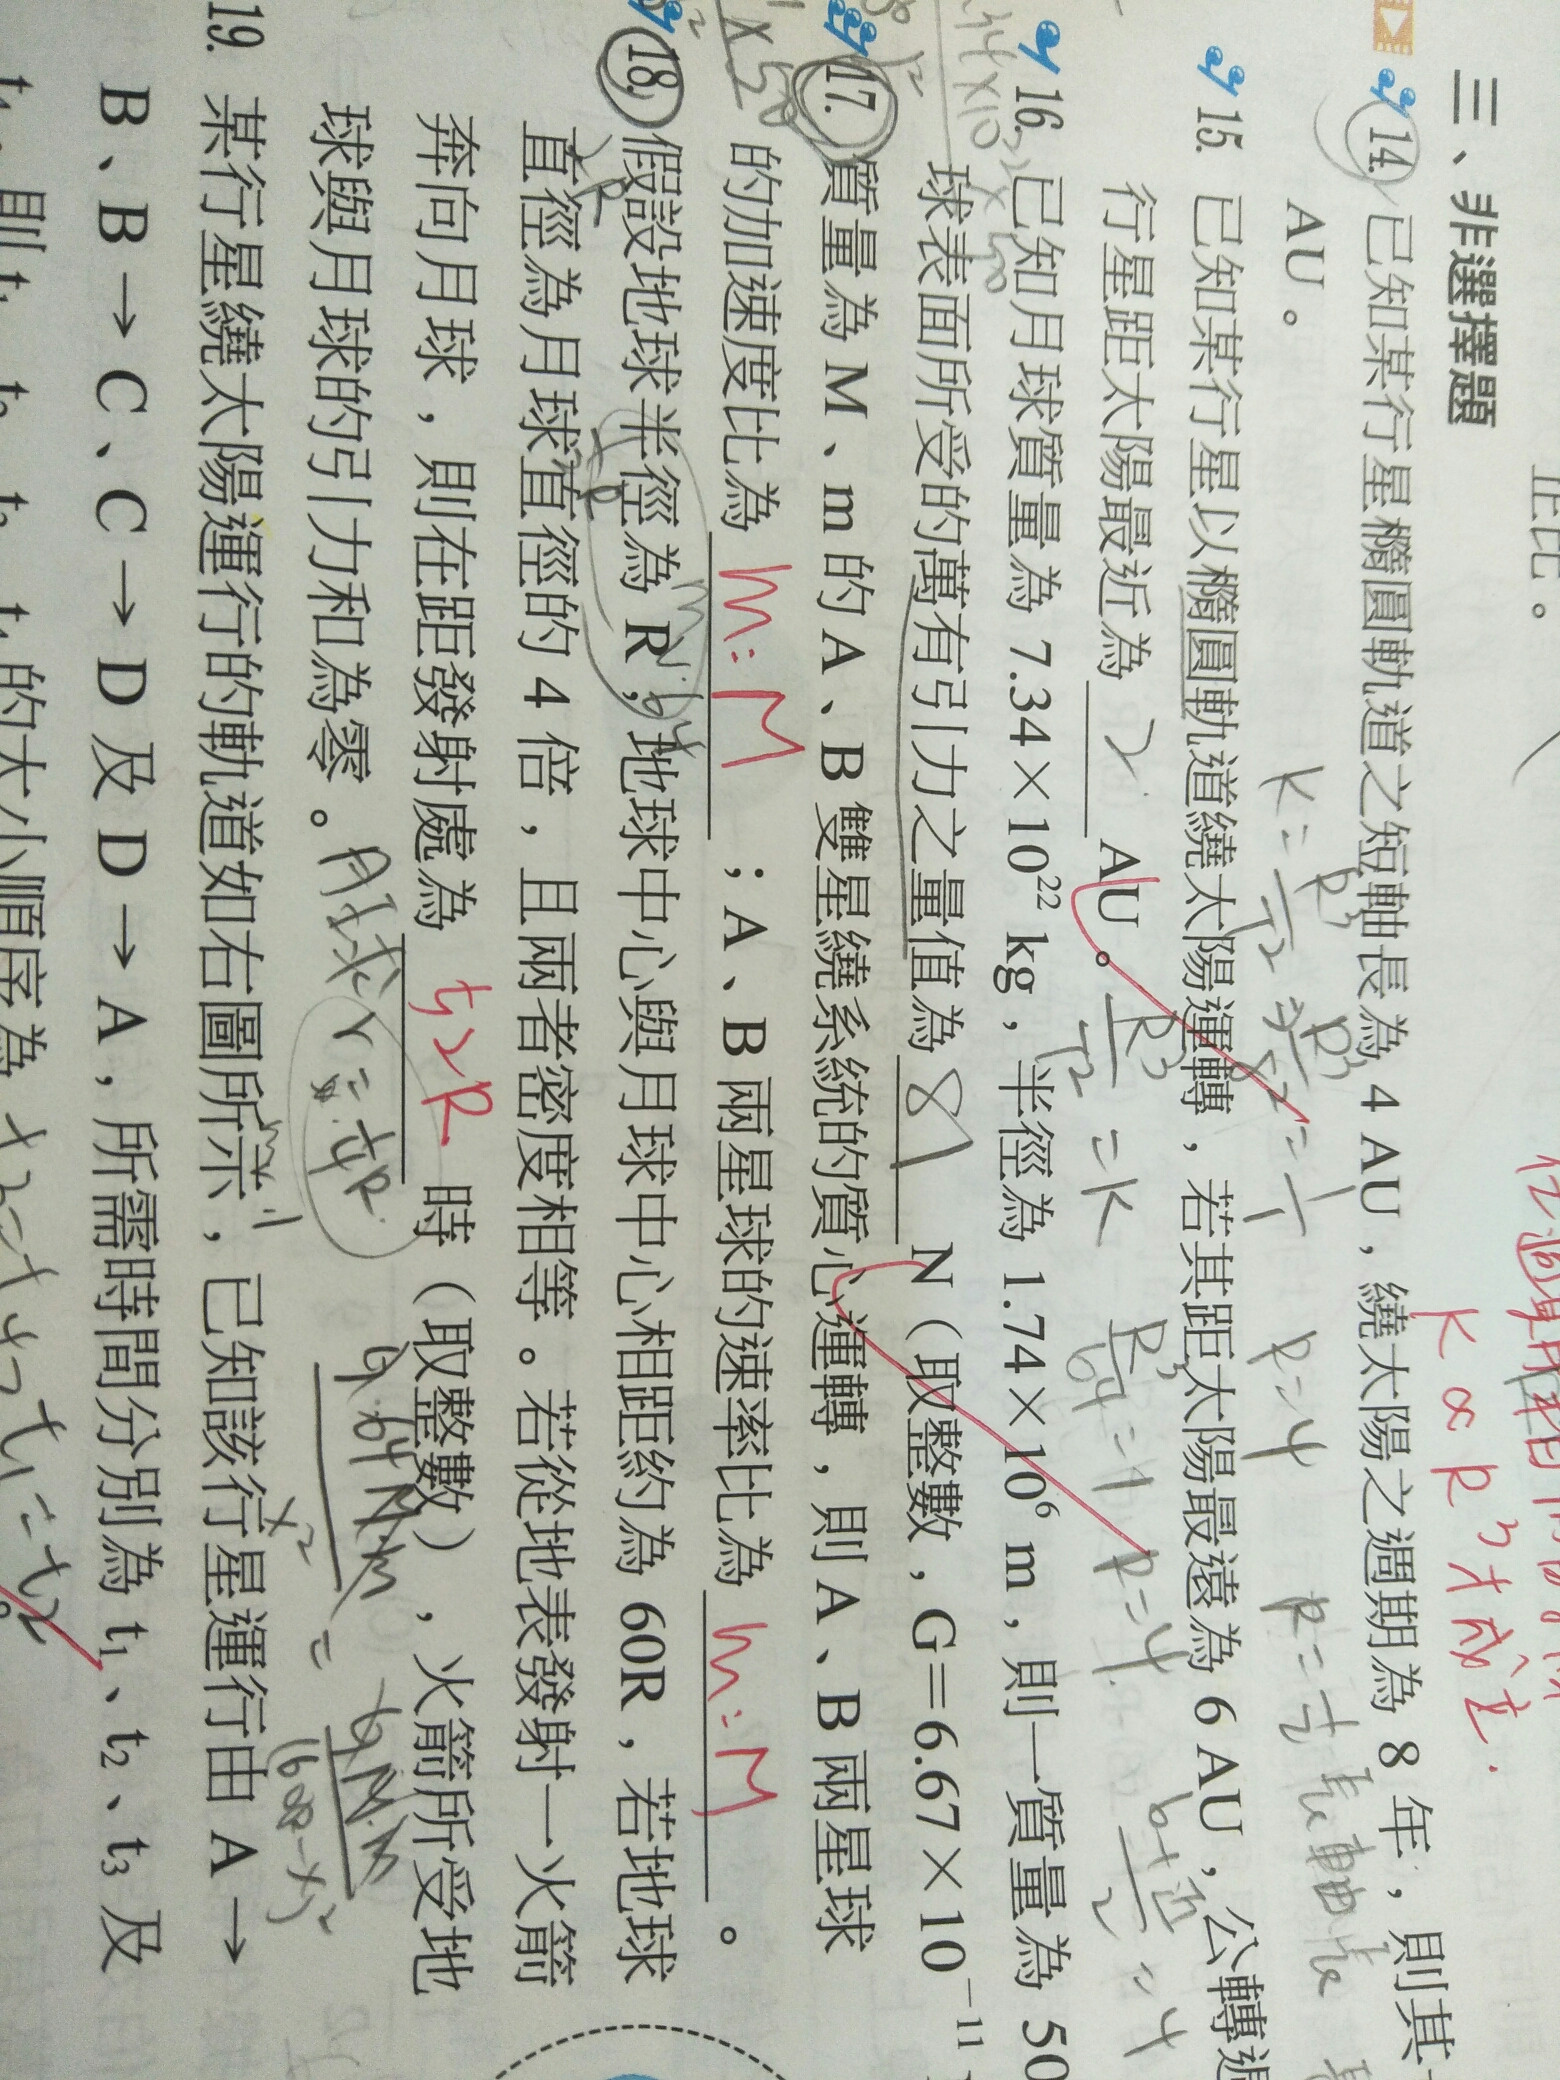 正比。
三、非選擇題
k ∝ R³才成立.
14. 已知某行星橢圓軌道之短軸長為 4 AU，繞太陽之週期為 8 年，則其
AU。
k= R³/T² R³/8²=1 R=4 R=½長軸長
15. 已知某行星以橢圓軌道繞太陽運轉，若其距太陽最遠為 6 AU，公轉週
行星距太陽最近為 2 AU。
R³/T² =k R³/64=1 R=4 6+近/2=4
16. 已知月球質量為 7.34×10²² kg，半徑為 1.74×10⁶ m，則一質量為 50
球表面所受的萬有引力之量值為 81 N（取整數，G＝6.67×10⁻¹¹
17. 質量為 M、m 的 A、B 雙星繞系統的質心運轉，則 A、B 兩星球
的加速度比為 m:M ；A、B 兩星球的速率比為 m:M 。
18. 假設地球半徑為 R，地球中心與月球中心相距約為 60R，若地球
直徑為月球直徑的 4 倍，且兩者密度相等。若從地表發射一火箭
奔向月球，則在距發射處為 52R 時（取整數），火箭所受地
球與月球的引力和為零。
月球r=¼R
19. 某行星繞太陽運行的軌道如右圖所示，已知該行星運行由 A→
B、B→C、C→D 及 D→A，所需時間分別為 t₁、t₂、t₃ 及
t₄，則 t₁、t₂、t₃、t₄ 的大小順序為